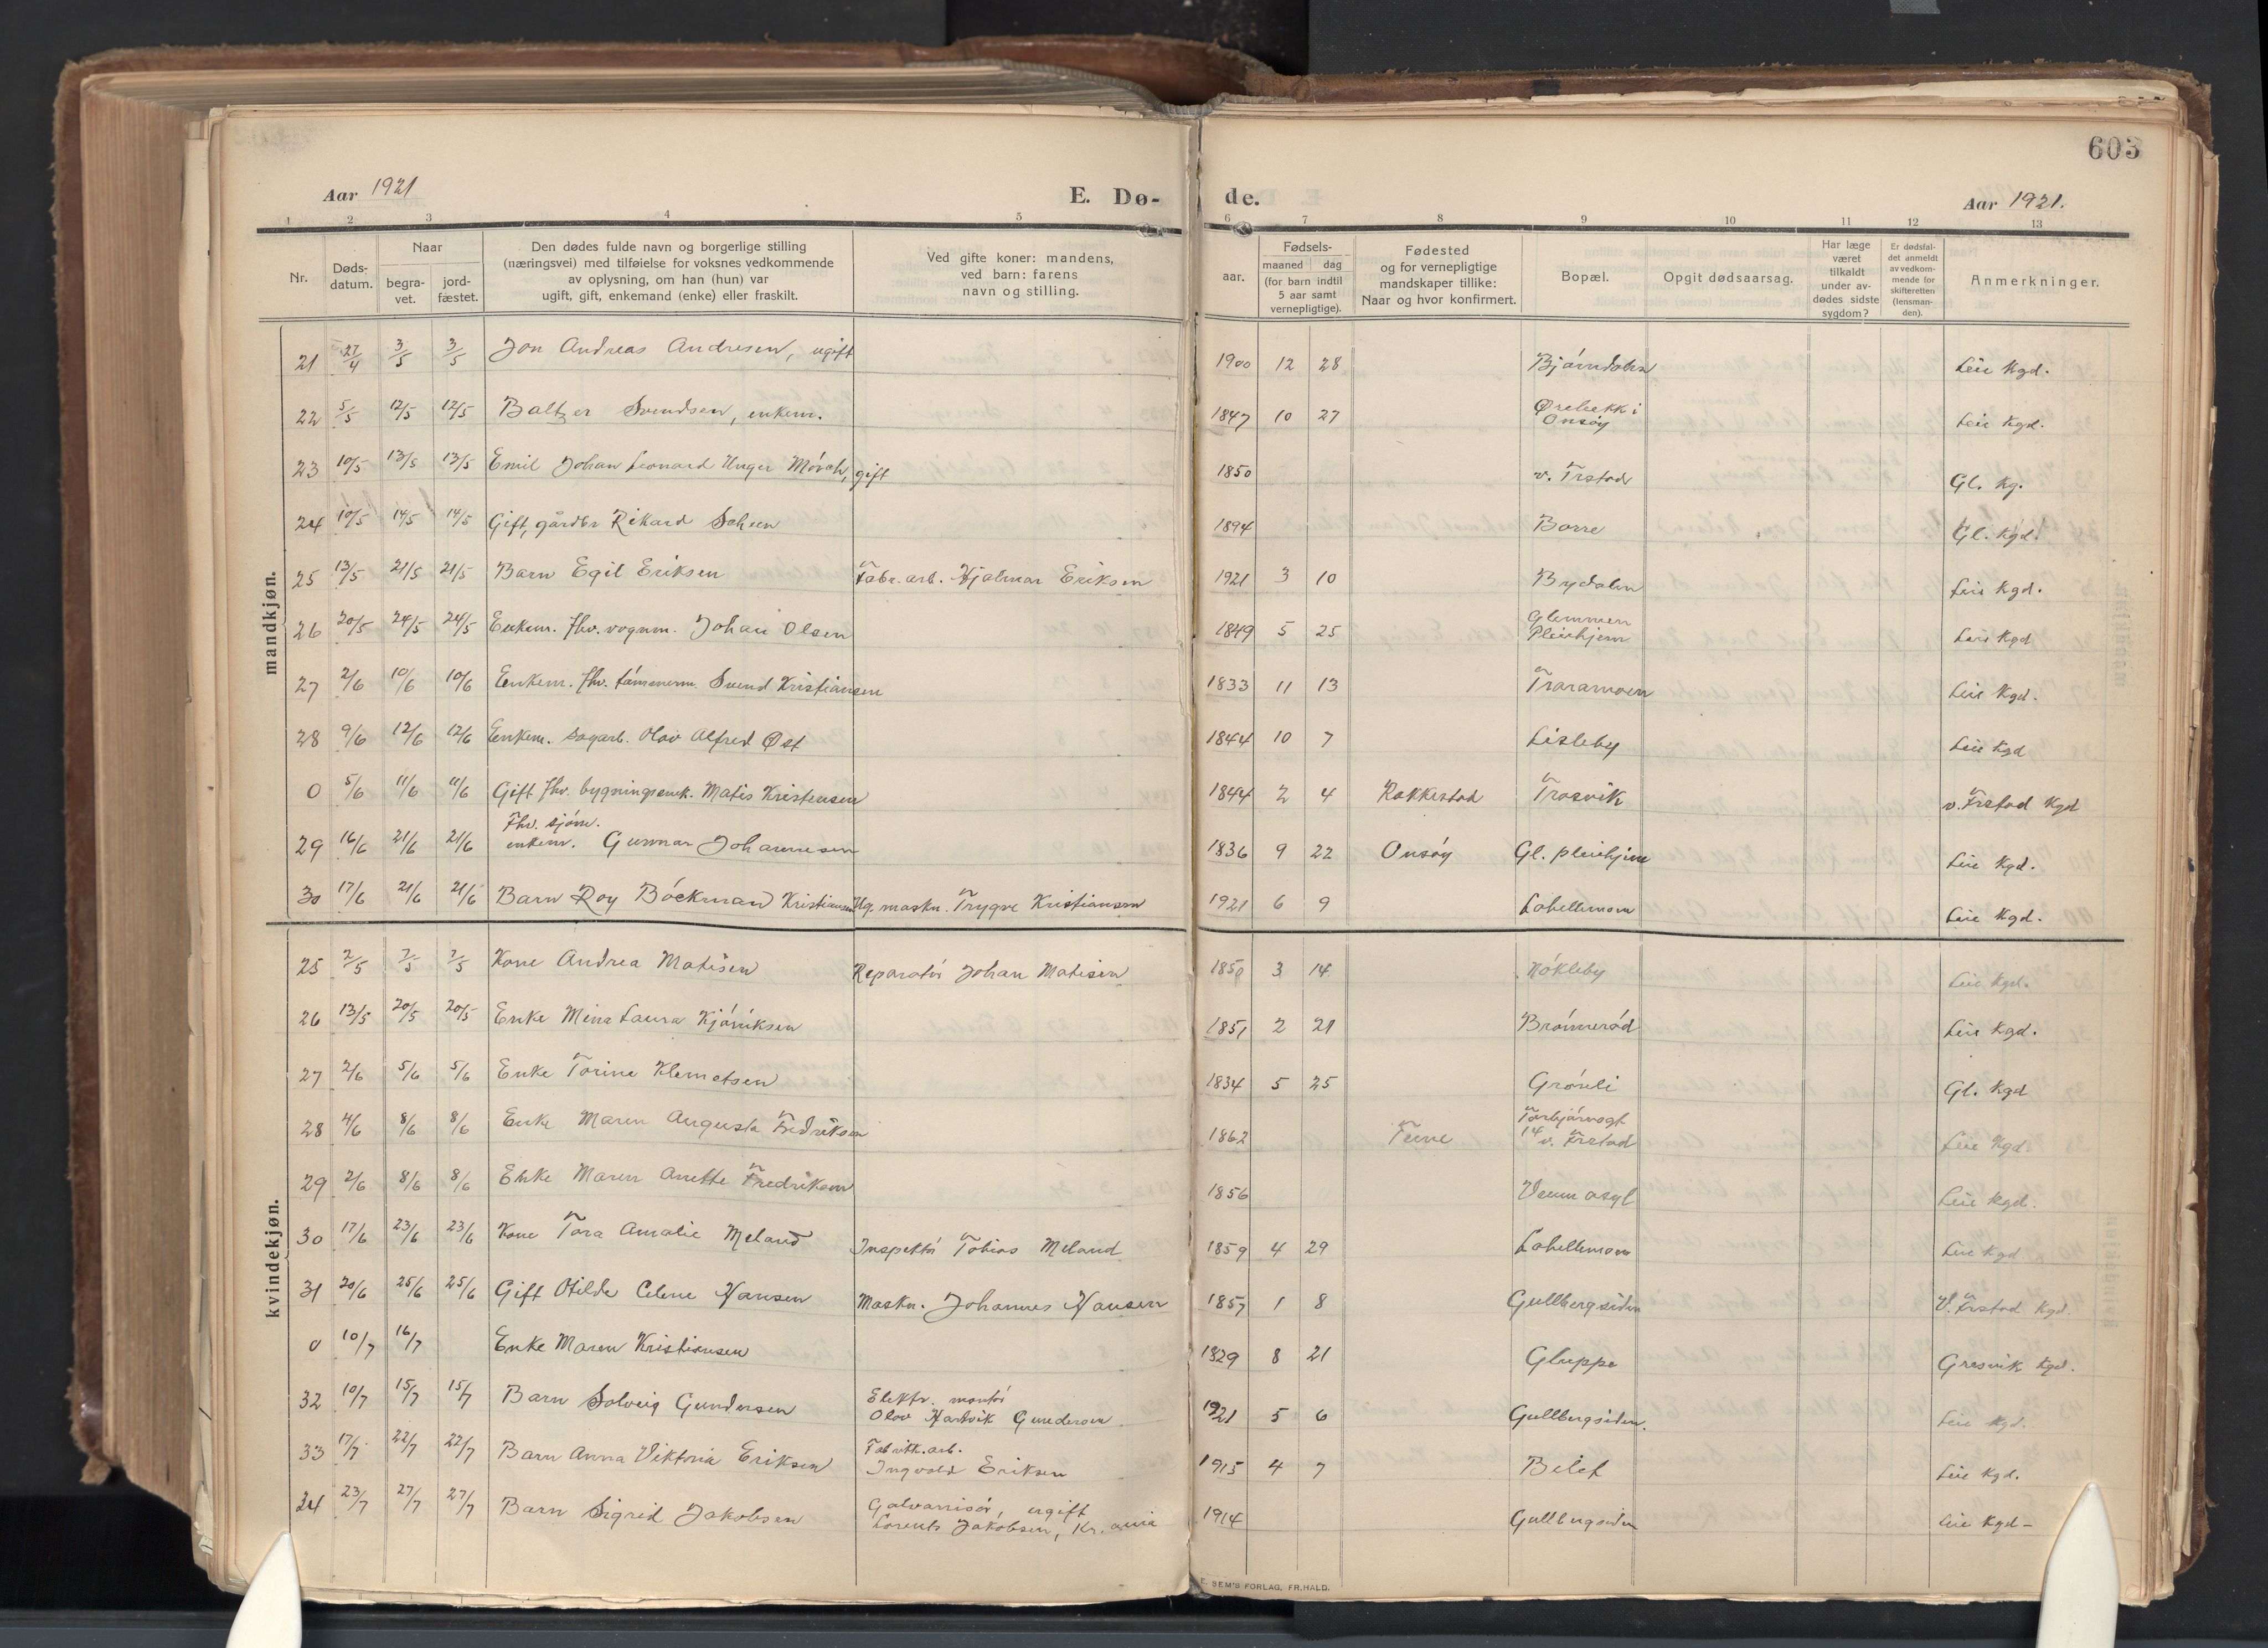 603
Aar 1921 E. Dø- de. Aar 1921.
1 2 3 4 5 6 7 8 9 10 11 12 13
Nr.
Døds-
datum.
Naar
begra-
vet.
jord-
fæstet.
Den dødes fulde navn og borgerlige stilling
(næringsvei) med tilføielse for voksnes vedkommende
av oplysning, om han (hun) var
ugift, gift, enkemand (enke) eller fraskilt.
Ved gifte koner: mandens,
ved barn: farens
navn og stilling.
Fødsels-
aar.
maaned dag
(for barn indtil
5 aar samt
vernepligtige).
Fødested
og for vernepligtige
mandskaper tillike:
Naar og hvor konfirmert.
Bopæl.
Opgit dødsaarsag.
Har læge
været
tilkaldt
under av-
dødes sidste
sygdom?
Er dødsfal-
det anmeldt
av vedkom-
mende for
skifteretten
(lensman-
den).
Anmerkninger.
mandkjøn.
21 27/4 3/5 3/5 Jon Andreas Andresen, ugift 1900 12 28 Bjørndalen Leie Kgd.
22 5/5 12/5 12/5 Baltzer Svendsen, enkem. 1847 10 27 Ørebekk i
Onsøy Leie Kgd.
23 10/5 13/5 13/5 Emil Johan Leonard Unger Mørch, gift 1850 v. Frstad Gl. Kg.
24 10/5 14/5 14/5 Gift, gårdbr Rikard Scheen 1894 Borre Gl. Kgd.
25 13/5 21/5 21/5 Barn Egil Eriksen Fabr. arb. Hjalmar Eriksen 1921 3 10 Brydalen Leie Kgd.
26 20/5 24/5 24/5 Enkem. fhv. vognm. Johan Olsen 1849 5 25 Glemmen
Pleiehjem Leie Kgd
27 2/6 10/6 10/6 Enkem. fhv. tømmerm. Svend Kristiansen 1833 11 13 Traramoen Leie Kgd.
28 9/6 12/6 12/6 Enkem. sagarb. Olav Alfred Øst 1844 10 7 Lisleby Leie Kgd
0 5/6 11/6 11/6 Gift fhv. bygningssnk. Matis Kristensen 1844 2 4 Rakkestad Trosvik v. Frstad Kgd
29 16/6 21/6 21/6 Fhv. sjøm.
enkem. Gunnar Johannesen 1836 9 22 Onsøy Gl. pleiehjem Leie Kgd.
30 17/6 21/6 21/6 Barn Roy Bøckman Kristiansen Ug. maskn. Trygve Kristiansen 1921 6 9 Labellemoen Leie Kgd.
kvindekjøn.
25 2/5 7/5 7/5 Kone Andrea Matisen Reparatør Johan Matisen 1850 3 14 Nøkleby Leie Kgd.
26 13/5 20/5 20/5 Enke Mina Laura Kjøniksen 1851 2 21 Brønnerød Leie Kgd.
27 2/6 5/6 5/6 Enke Torine Klemetsen 1834 5 25 Grønli Gl. Kgd
28 4/6 8/6 8/6 Enke Maren Augusta Fredriksen 1862 Torbjørnsgt
14 v. Frstad Leie Kgd.
29 2/6 8/6 8/6 Enke Maren Anette Fredriksen 1856 Veum asyl Leie Kgd.
30 17/6 23/6 23/6 Kone Tora Amalie Meland Inspektør Tobias Meland 1859 4 29 Labellemoen Leie Kgd
31 20/6 25/6 25/6 Gift Otilde Celene Hansen Maskn. Johannes Hansen 1857 1 8 Gullbergsiden V. Frstad Kgd.
0 10/7 16/7 Enke Maren Kristiansen 1829 8 21 Gluppe Gresvik Kgd.
32 10/7 15/7 15/7 Barn Solveig Gundersen Elektr. montør
Olav Hartvik Gundersen 1921 5 6 Gullbergsiden. Leie Kgd.
33 17/7 22/7 22/7 Barn Anna Viktoria Eriksen Fabrik.arb.
Ingvald Eriksen 1915 4 7 Leie Kgd.
24 23/7 27/7 27/7 Barn Sigrid Jakobsen Galvanisør, ugift
Lorents Jakobsen, Kr. ania 1914 Gullbergsiden Leie Kgd-
E. SEM'S FORLAG, FR.HALD.